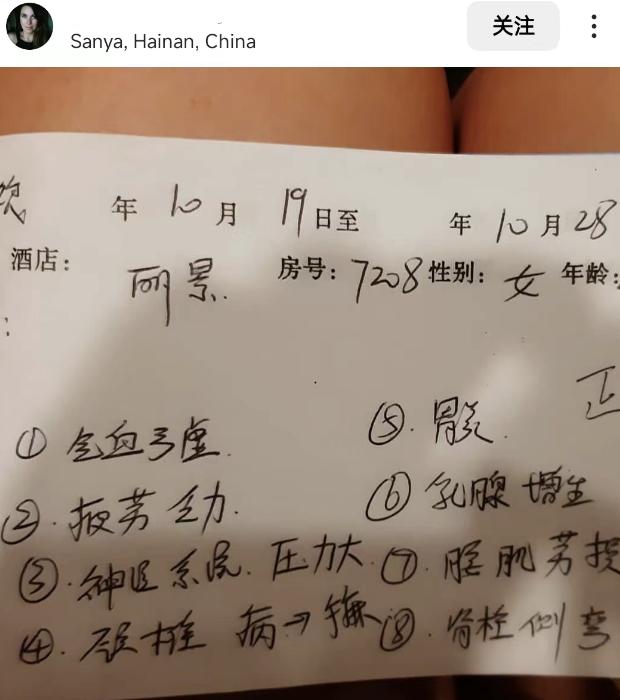 关注
Sanya, Hainan, China
年 10 月 19 日至 年 10 月 28
酒店: 丽景 房号: 7208 性别: 女 年龄:
① 气血亏虚. ⑤. 胃炎.
②. 疲劳乏力. ⑥ 乳腺增生
③. 神经系统. 压力大. ⑦. 腰肌劳损
④. 颈椎病→ ⑧. 脊柱侧弯